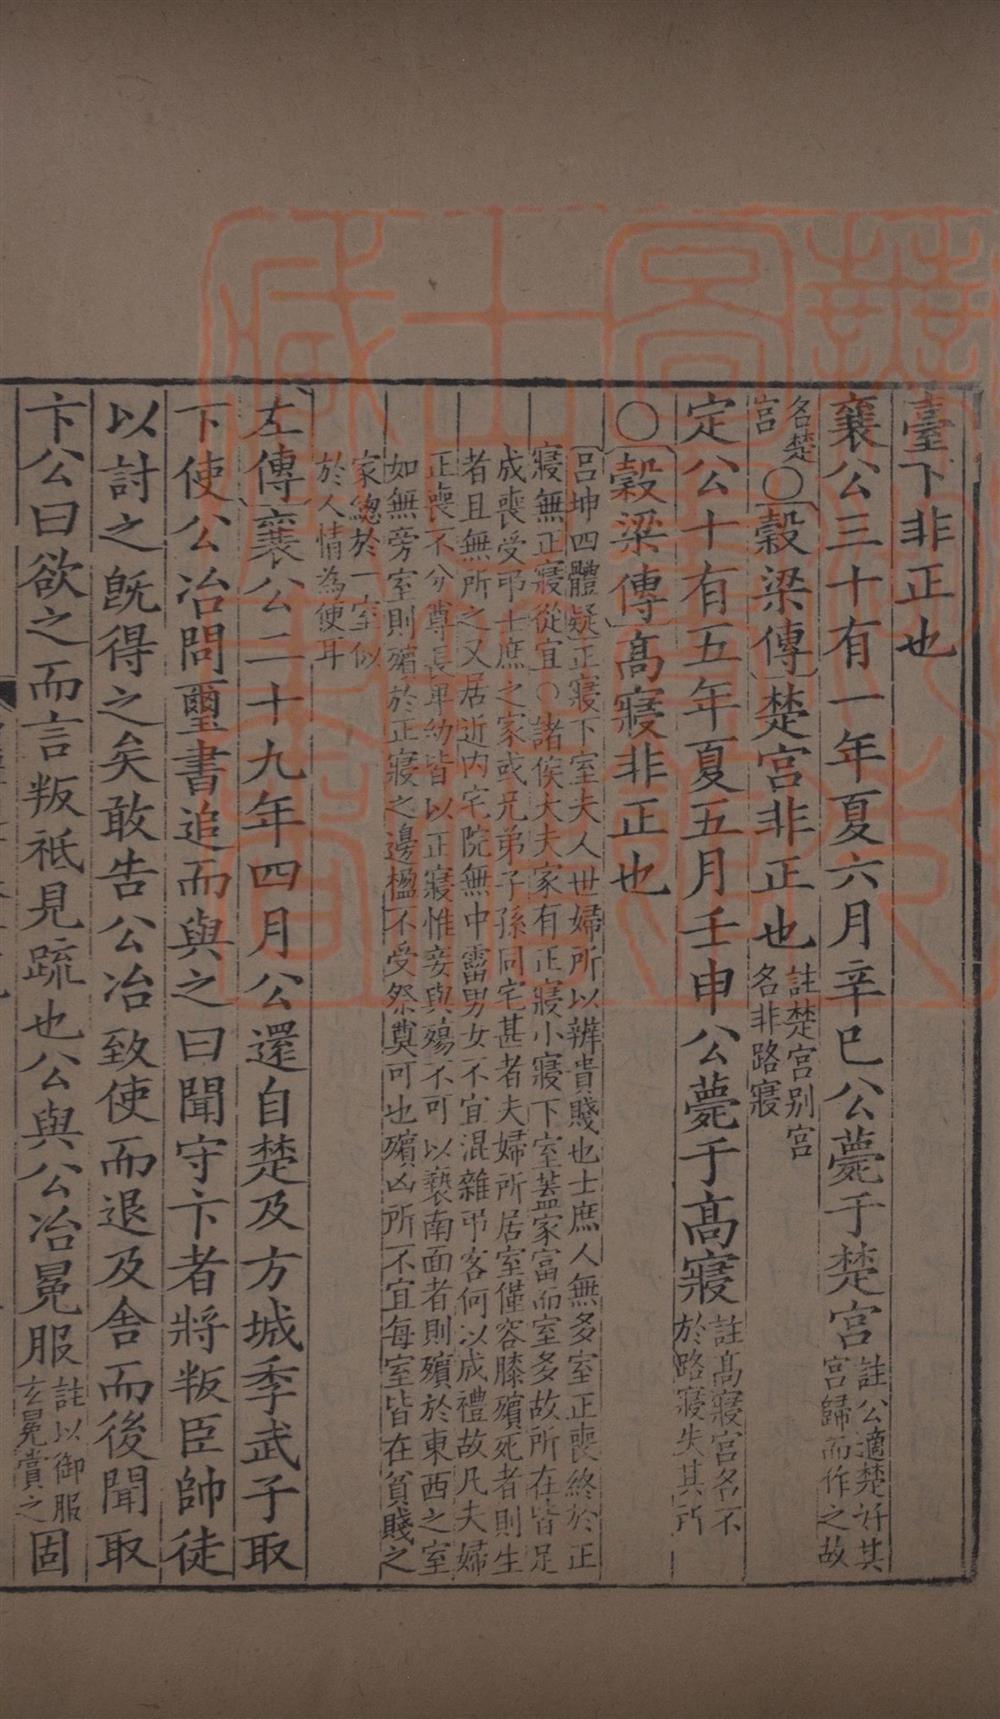 臺下非正也
襄公三十有一年夏六月辛巳公薨于楚宮註公適楚好其宮歸而作之故
名楚宮○穀梁傳楚宮非正也註楚宮别宮名非路寢
定公十有五年夏五月壬申公薨于高寢註高寢宮名不於路寢失其所
○穀梁傳高寢非正也
呂坤四體疑正寢下室夫人世婦所以辨貴賤也士庶人無多室正喪終於正
寢無正寢從宜○諸侯大夫家有正寢小寢下室葢家富而室多故所在皆足
成喪受弔士庶之家或兄弟子孫同宅甚者夫婦所居室僅容膝殯死者則生
者且無所之又居近内宅院無中霤男女不宜混雜弔客何以成禮故凡夫婦
正喪不分尊長卑幼皆以正寢惟妾與殤不可以褻南面者則殯於東西之室
如無旁室則殯於正寢之邊楹不受祭奠可也殯凶所不宜每室皆在貧賤之
家總於一室似
於人情為便耳
左傳襄公二十九年四月公還自楚及方城季武子取
卞使公冶問璽書追而與之曰聞守卞者將叛臣帥徒
以討之既得之矣敢告公冶致使而退及舍而後聞取
卞公曰欲之而言叛祗見疏也公與公冶冕服註以御服玄冕賞之固